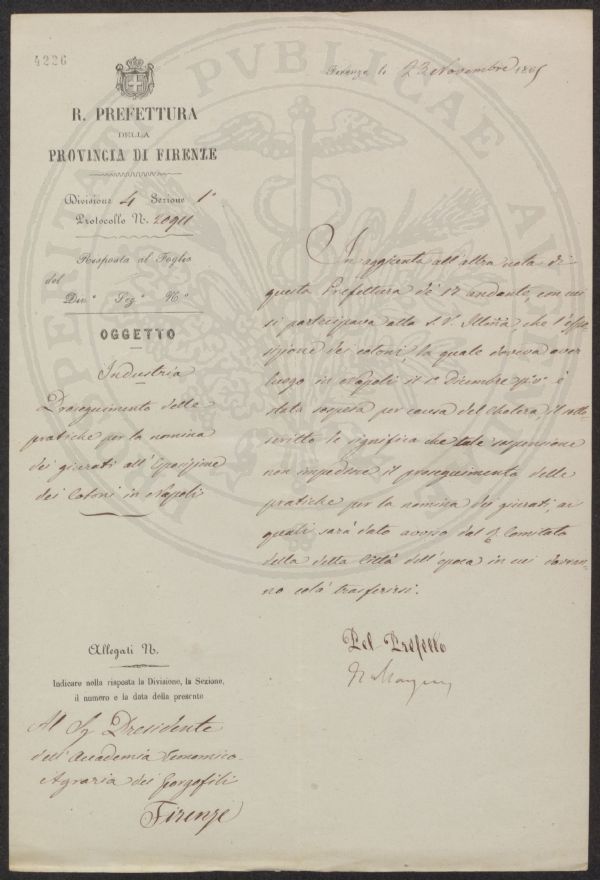 4226
R. PREFETTURA
DELLA
PROVINCIA DI FIRENZE
Divisione 4 Sezione 1ª
Protocollo N.
Risposta al Foglio
del
Div.ª Sez.ª N.º
OGGETTO
Industria
Proseguimento delle
pratiche per la nomina
dei giurati all'Esposizione
dei Cotoni in Napoli
Allegati N.
Indicare nella risposta la Divisione, la Sezione,
il numero e la data della presente
Al Sig. Presidente
dell'Accademia Economico-
Agraria dei Georgofili
Firenze
Firenze li 23 Novembre 1865
In aggiunta all'altra nota di
questa Prefettura de' 17 andante, con cui
si partecipava alla S. V. Illma, che l'espo
sizione dei cotoni la quale doveva aver
luogo in Napoli il 1º dicembre pº vº è
stata sospesa per causa del Cholera, il sotto-
scritto le significa che tale sospensione
non impedisce il proseguimento delle
pratiche per la nomina dei giurati, ai
quali sarà dato avviso dal Comitato
della detta Città dell'epoca in cui dovran-
no colà trasferirsi.
Pel Prefetto
PVBLICAE